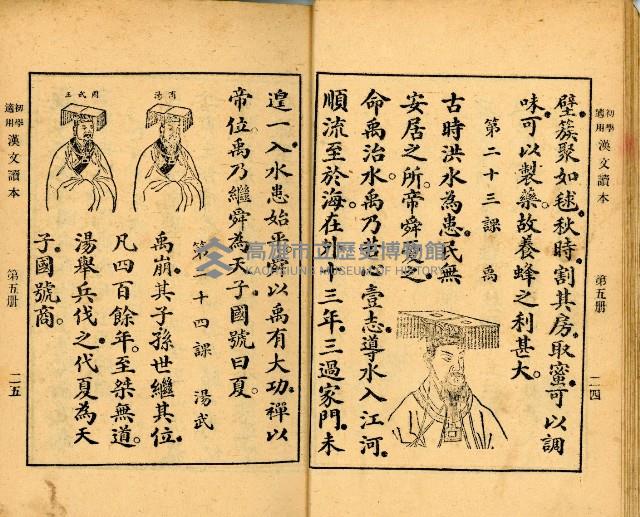 初學適用 漢文讀本 第五册 二四
壁。簇聚如毬。秋時。割其房。取蜜可以調
味。可以製藥。故養蜂之利甚大。
第二十三課 禹
古時洪水為患。民無
安居之所。帝舜之。
命禹治水。禹乃苦心壹志。導水入江河。
順流至於海。在十三年。三過家門。未
遑一入。水患始平。舜以禹有大功。禪以
帝位。禹乃繼舜為天子。國號曰夏。
第十四課 湯武
商湯
周武王
禹崩。其子孫世繼其位。
凡四百餘年。至桀無道。
湯舉兵伐之。代夏為天
子。國號商。
初學適用 漢文讀本 第五册 二五
高雄市立歷史博物館
KAOHSIUNG MUSEUM OF HISTORY